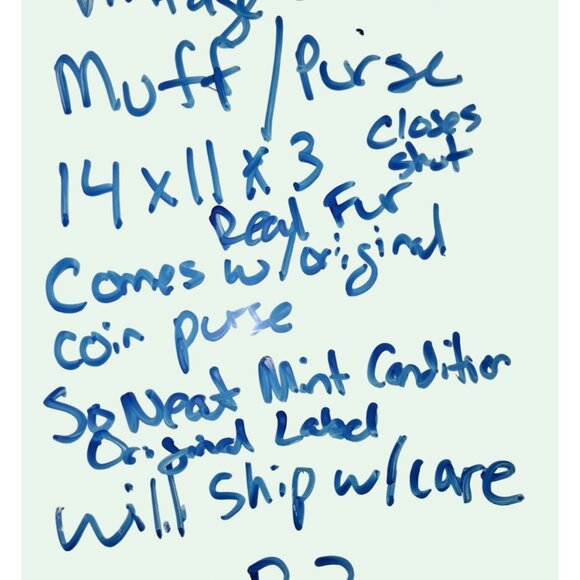 Vintage
Muff/Purse
14 x 11 x 3 closes shut
Real Fur
Comes w/original
coin purse
So Neat Mint Condition
Original Label
will ship w/care